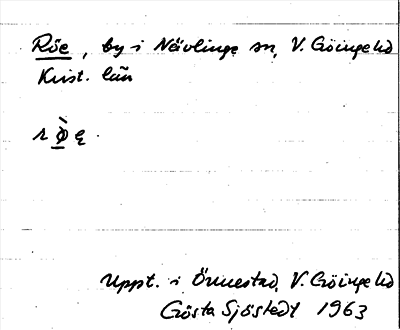 Röe, by i Nävlinge sn, V. Göinge hd
Krist. län
r ø̀ ę.
Uppt. i Önnestad, V. Göinge hd
Gösta Sjöstedt 1963